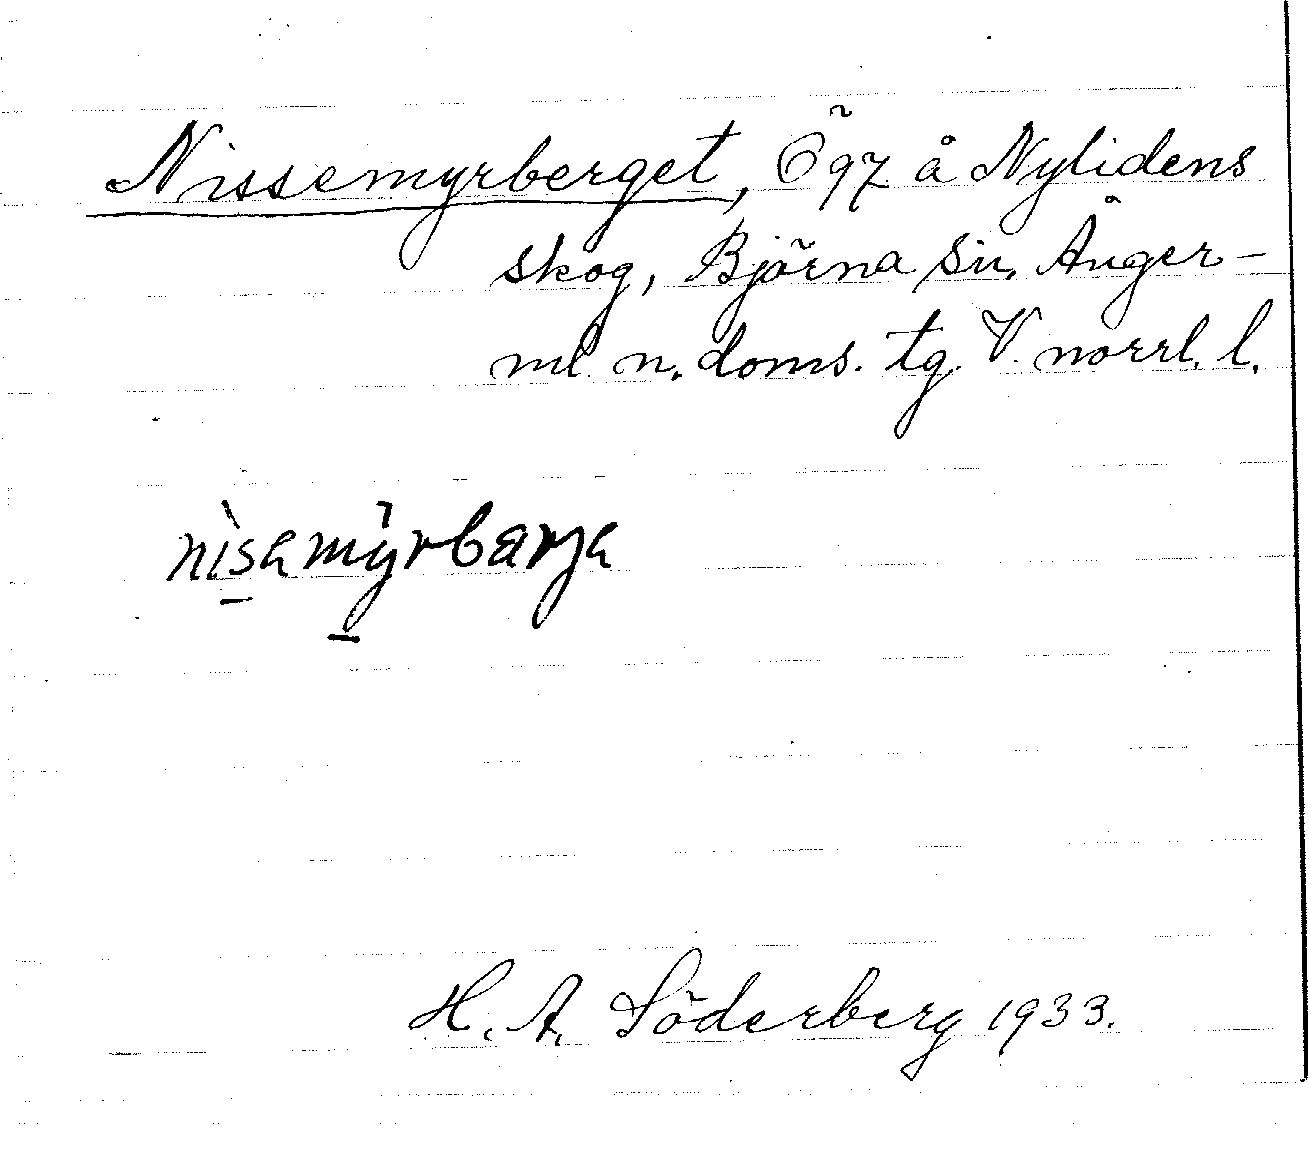 Nissemyrberget, Ö 97 å Nylidens
skog, Björna sn, Ånger-
ml n. doms. tg. V. norrl. l.
nìsamỳrbarja
H. A. Söderberg 1933.